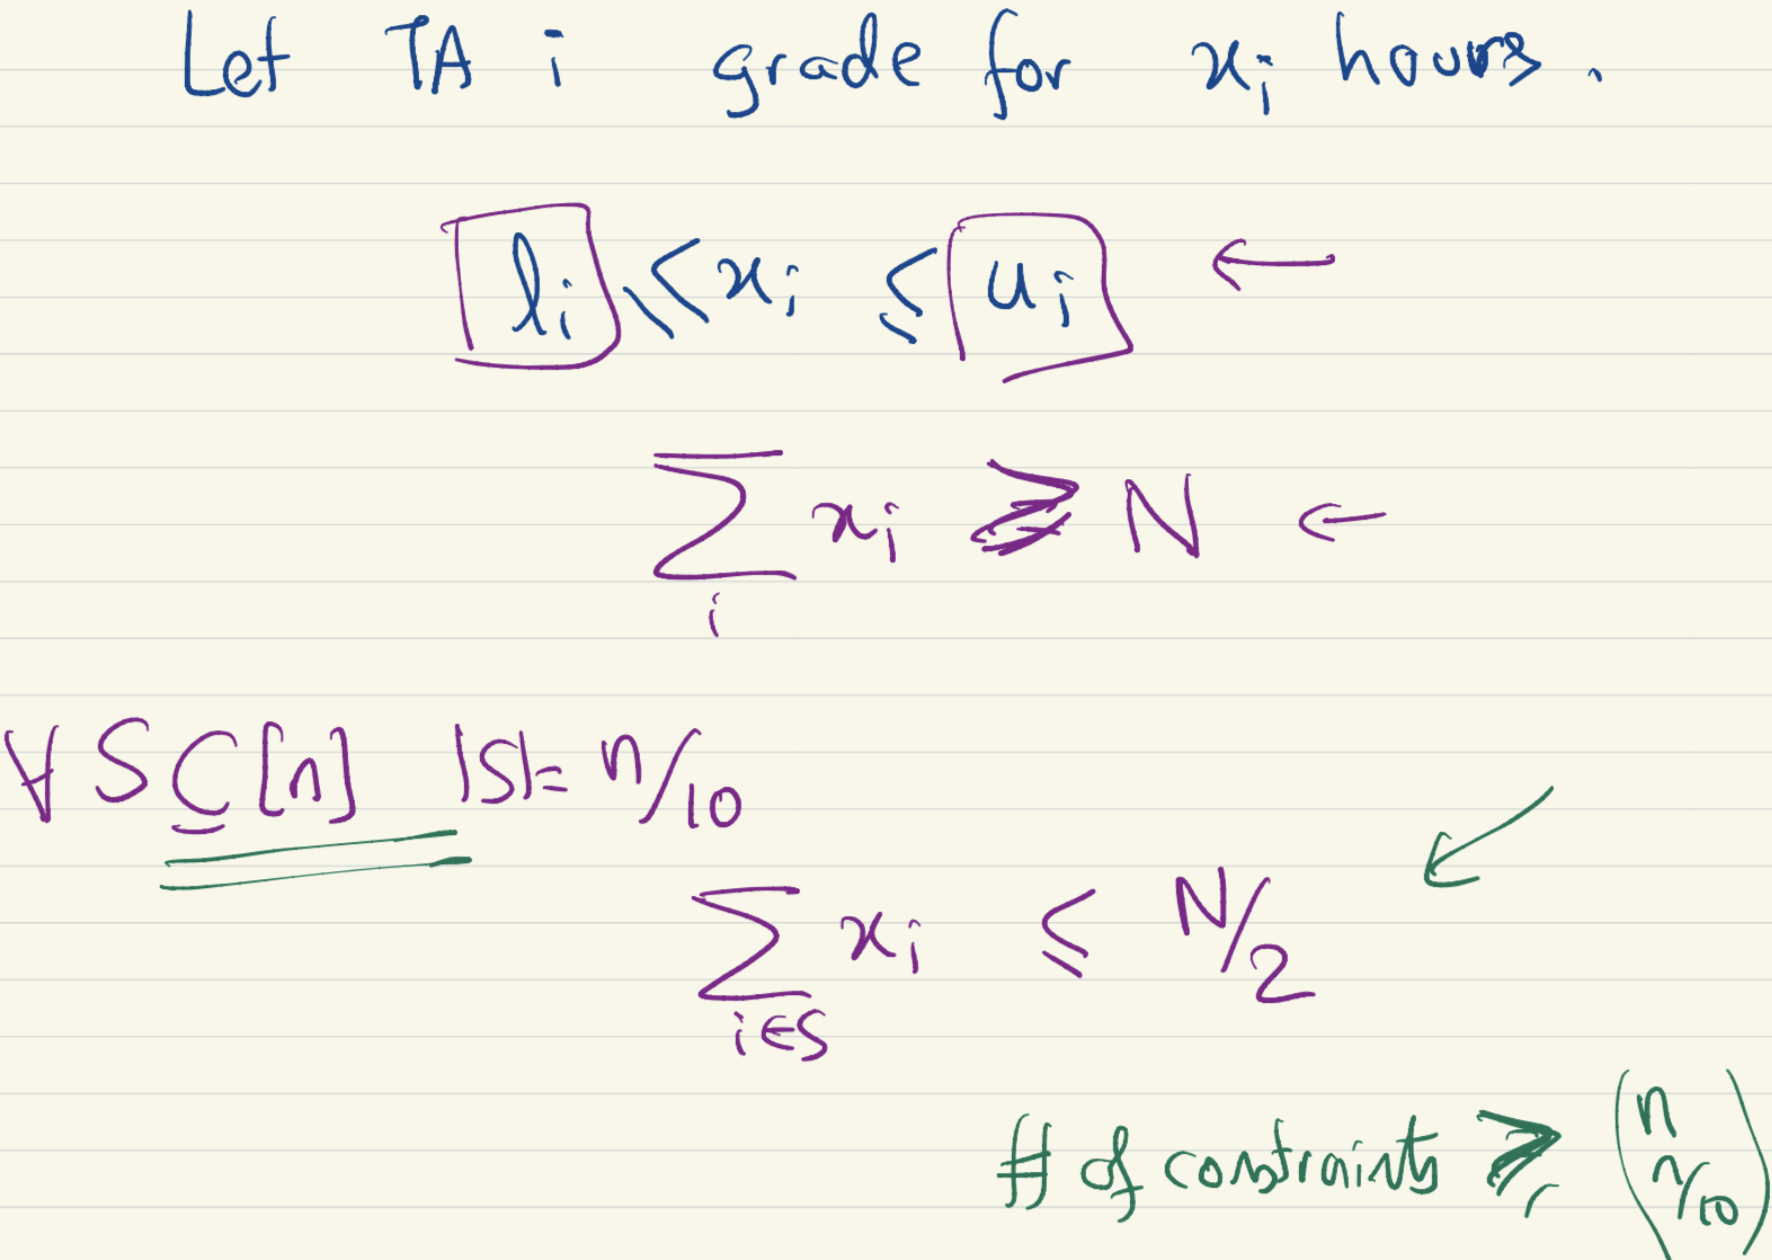 Let TA i grade for xᵢ hours.
lᵢ ≤ xᵢ ≤ uᵢ ←
∑ xᵢ ≥ N ←
i
∀ S ⊆ [n] |S| = n/10
∑ xᵢ ≤ N/2
i∈S
# of constraints ≥ (n
n/10)